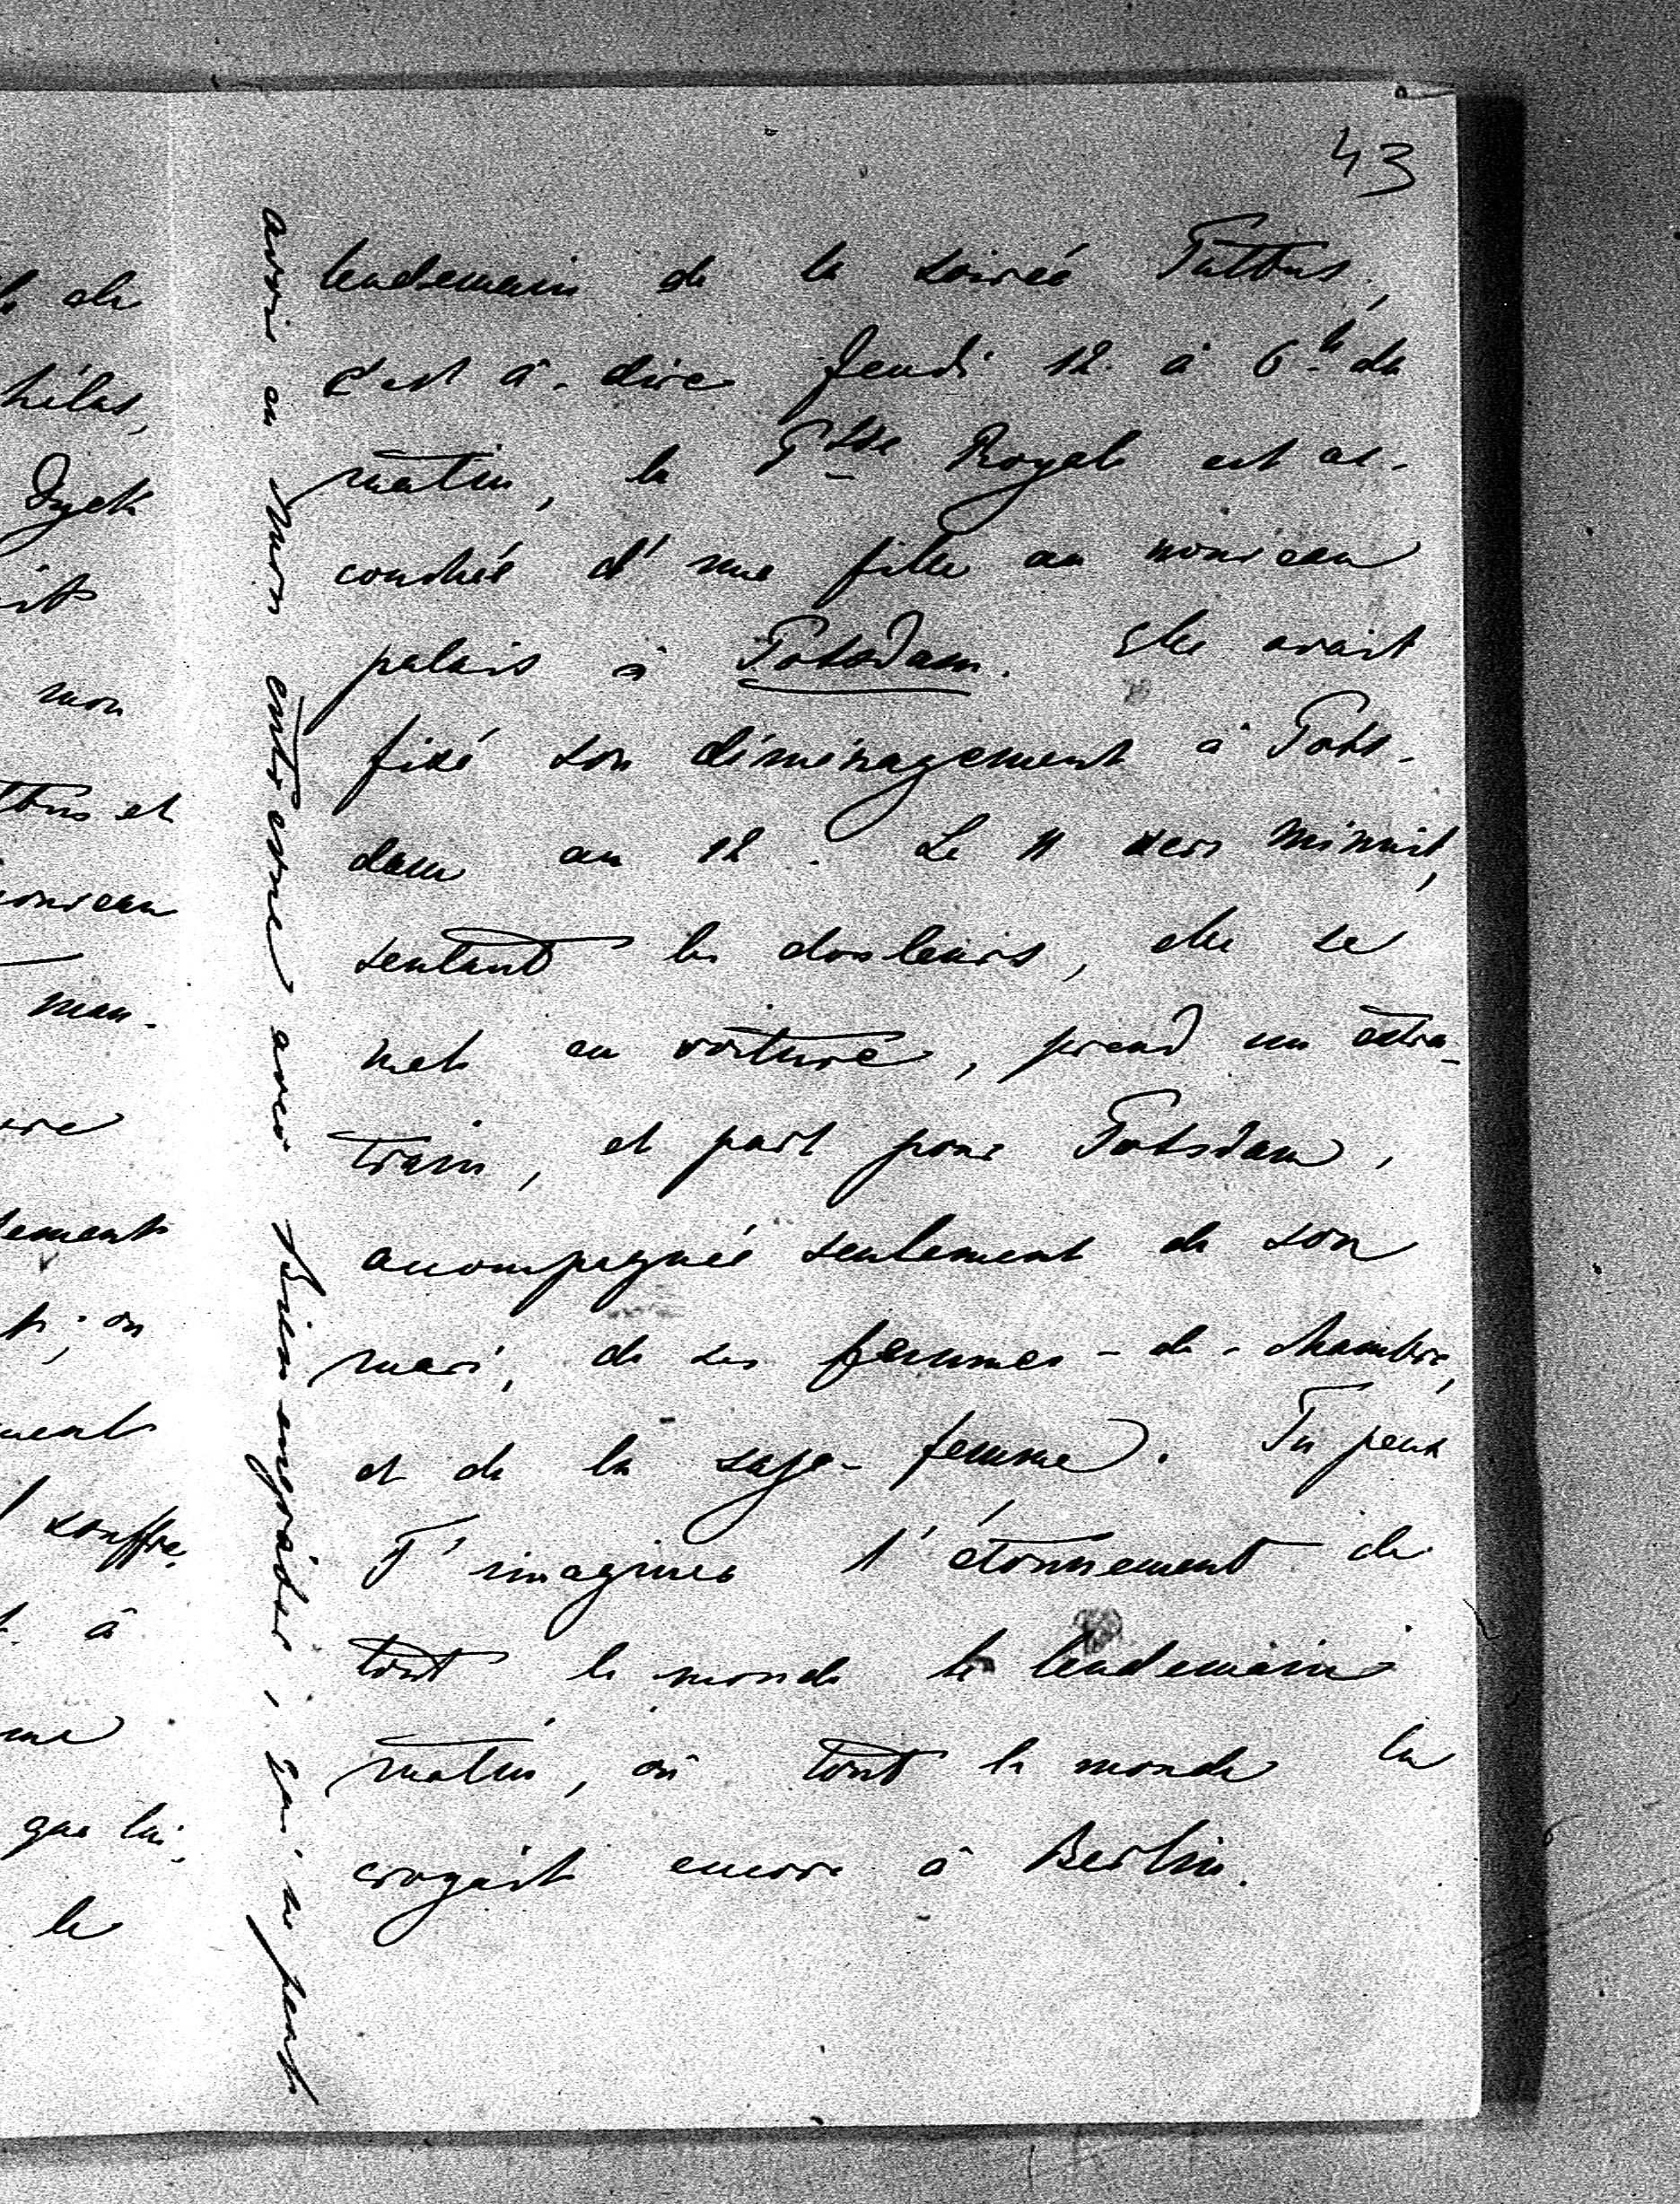 43
lendemain de la soirée Puttbus,
c'est à-dire Jeudi 12. à 6.h du
matin, la Psse Royale est ac-
couchée d'une fille au nouveau
palais à Potsdam. Elle avait
fixé son déménagement à Pots-
dam au 12. Le 11 vers minuit,
sentant les douleurs, elle se
met en voiture, prend un extra-
train, et part pour Potsdam,
accompagnée seulement de son
mari, de ses femmes-de-chambre,
et de la sage-femme. Tu peux
t'imaginer l'étonnement de
tout le monde le lendemain
matin, où tout le monde la
croyait encore à Berlin.
avoir eu mon entrevue avec Bismarck, qui ne peut
de
hélas,
Dyck
mon
et
nouveau
man-
on
souffre
à
que lui
le